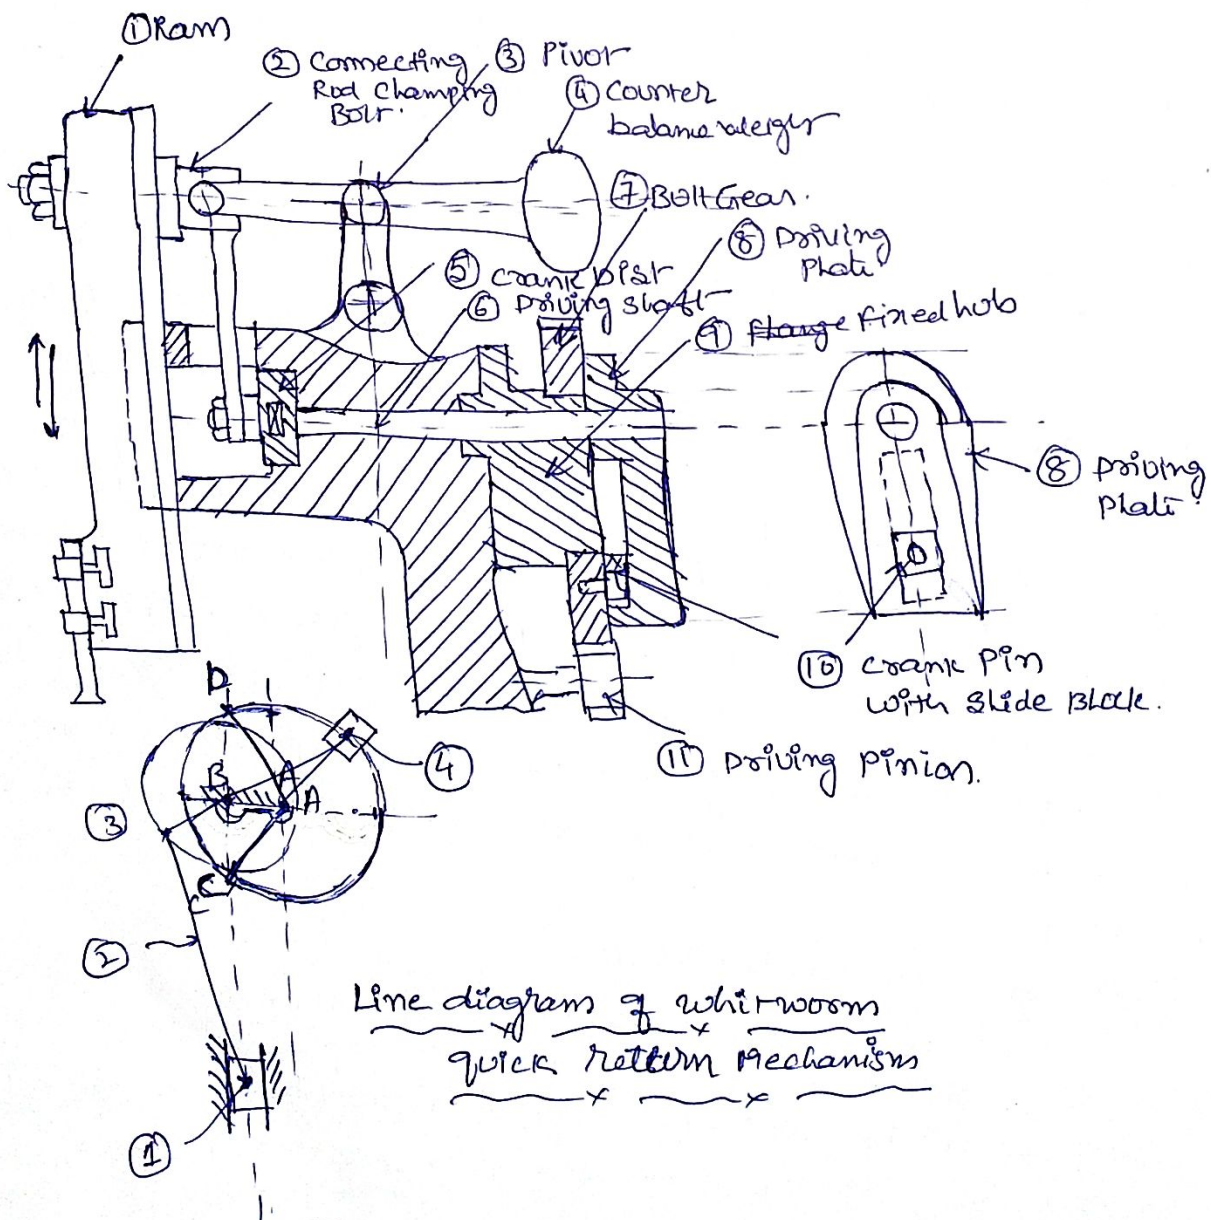 ① Ram
② Connecting
Rod Champing
Bolt.
③ Pivot
④ Counter
balance weight
⑦ Bull Gear.
⑧ Driving
Plate
⑤ Crank Dist
⑥ Driving Shaft
⑨ flange fixed hub
⑧ Driving
Plate
⑩ Crank Pin
With Slide Block.
⑪ Driving Pinion.
D
④
B
A
A
③
C
C
②
Line diagram of whitworm
quick return Mechanism
①